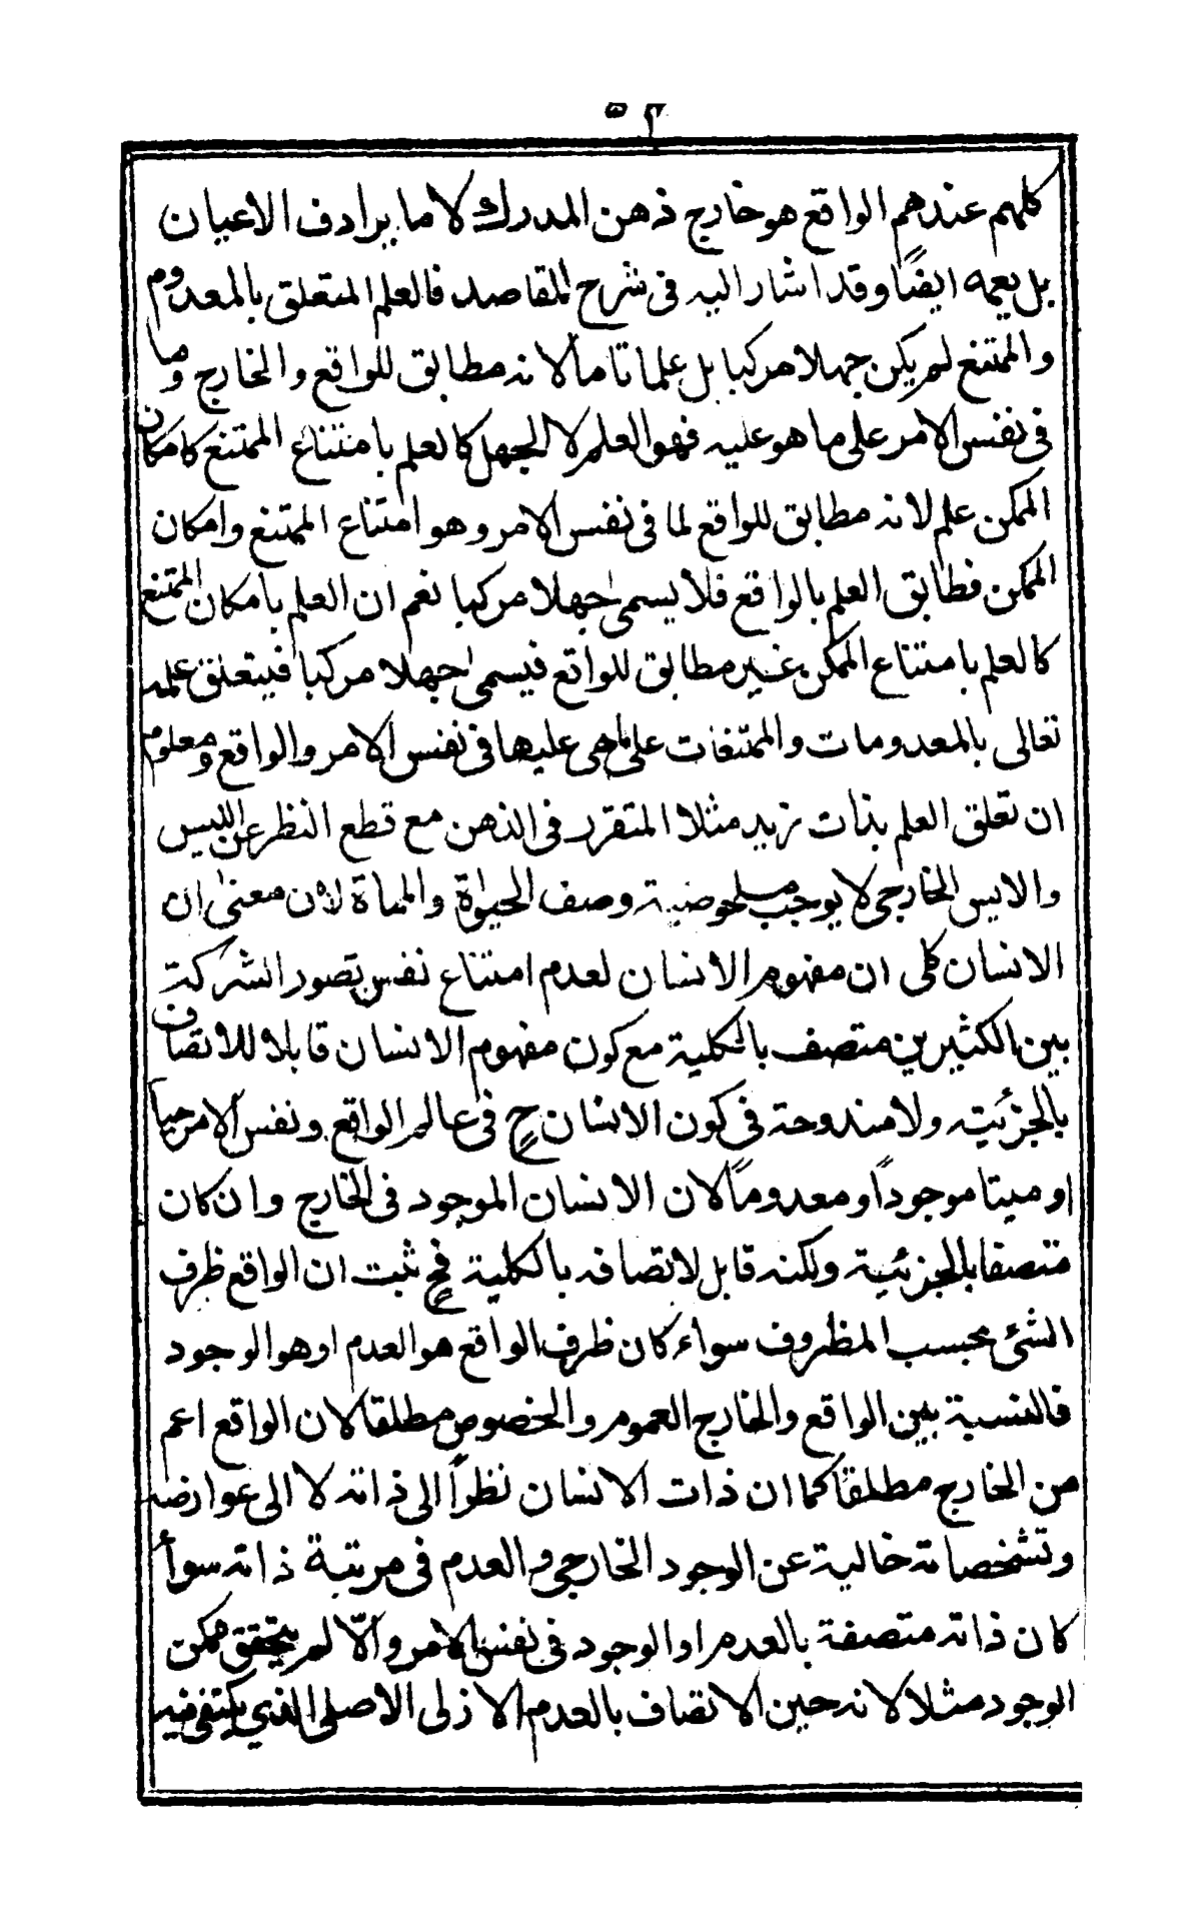 ٥٢
كلهم عندهم الواقع هو خارج ذهن المدرك لا ما يرادف الاعيان
بل يعمه ايضًا وقد اشار اليه فى شرح المقاصد فالعلم المتعلق بالمعدوم
والممتنع لم يكن جهلا مركبا بل علما تاما لانه مطابق للواقع والخارج وما
فى نفس الامر على ما هو عليه فهو العلم لا الجهل كالعلم بامتناع الممتنع كامكان
الممكن علم لانه مطابق للواقع لما فى نفس الامر وهو امتناع الممتنع وامكان
الممكن فطابق العلم بالواقع فلا يسمى جهلا مركبا نعم ان العلم بامكان الممتنع
كالعلم بامتناع الممكن غير مطابق للواقع فيسمى جهلا مركبا فيتعلق علمه
تعالى بالمعدومات والممتنعات على ما هى عليها فى نفس الامر والواقع ومعلوم
ان تعلق العلم بذات زيد مثلا المتقرر فى الذهن مع قطع النظر عن الليس
والايس الخارجى لا يوجب وصف الحيٰوة والمماة لان معنى ان
الانسان كلى ان مفهوم الانسان لعدم امتناع نفس تصور الشركة
بين الكثيرين متصف بالكلية مع كون مفهوم الانسان قابلا للاتصاف
بالجزئية ولا مندوحة فى كون الانسان ح فى عالم الواقع ونفس الامر حيا
او ميتا موجودًا ومعدومًا لان الانسان الموجود فى الخارج وان كان
متصفا بالجزئية ولكنه قابل لاتصافه بالكلية فح ثبت ان الواقع ظرف
الشئ بحسب المظروف سواء كان ظرف الواقع هو العدم او هو الوجود
فالنسبة بين الواقع والخارج العموم والخصوص مطلقا لان الواقع اعم
من الخارج مطلقًا كما ان ذات الانسان نظرًا الى ذاته لا الى عوارضه
وتشخصاته خالية عن الوجود الخارجى والعدم فى مرتبة ذاته سوأ
كان ذاته متصفة بالعدم او الوجود فى نفس الامر والّا لم يتحقق ممكن
الوجود مثلا لانه حين الاتصاف بالعدم الازلى الاصلى الذي يكتفى فيه